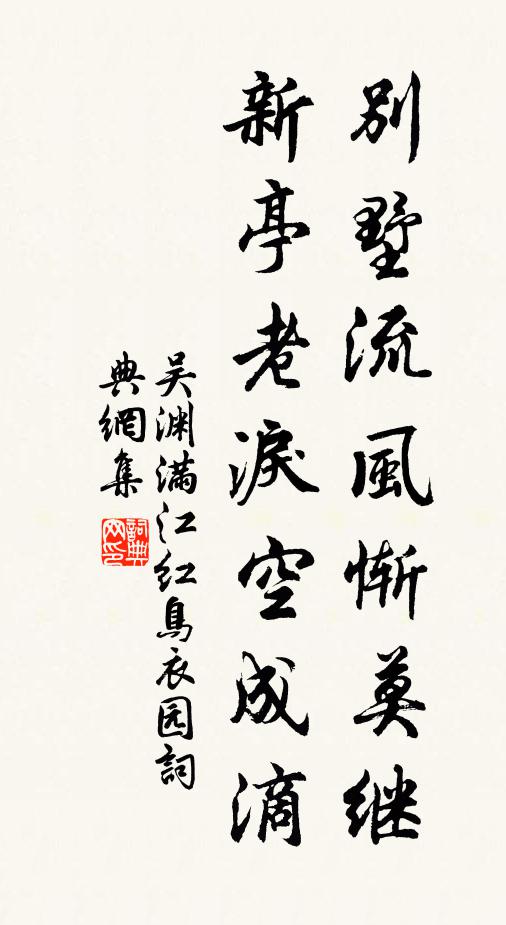 别墅流風惭莫继
新亭老淚空成滴
吴渊满江红鳥衣园詞
典網集
詞典网印